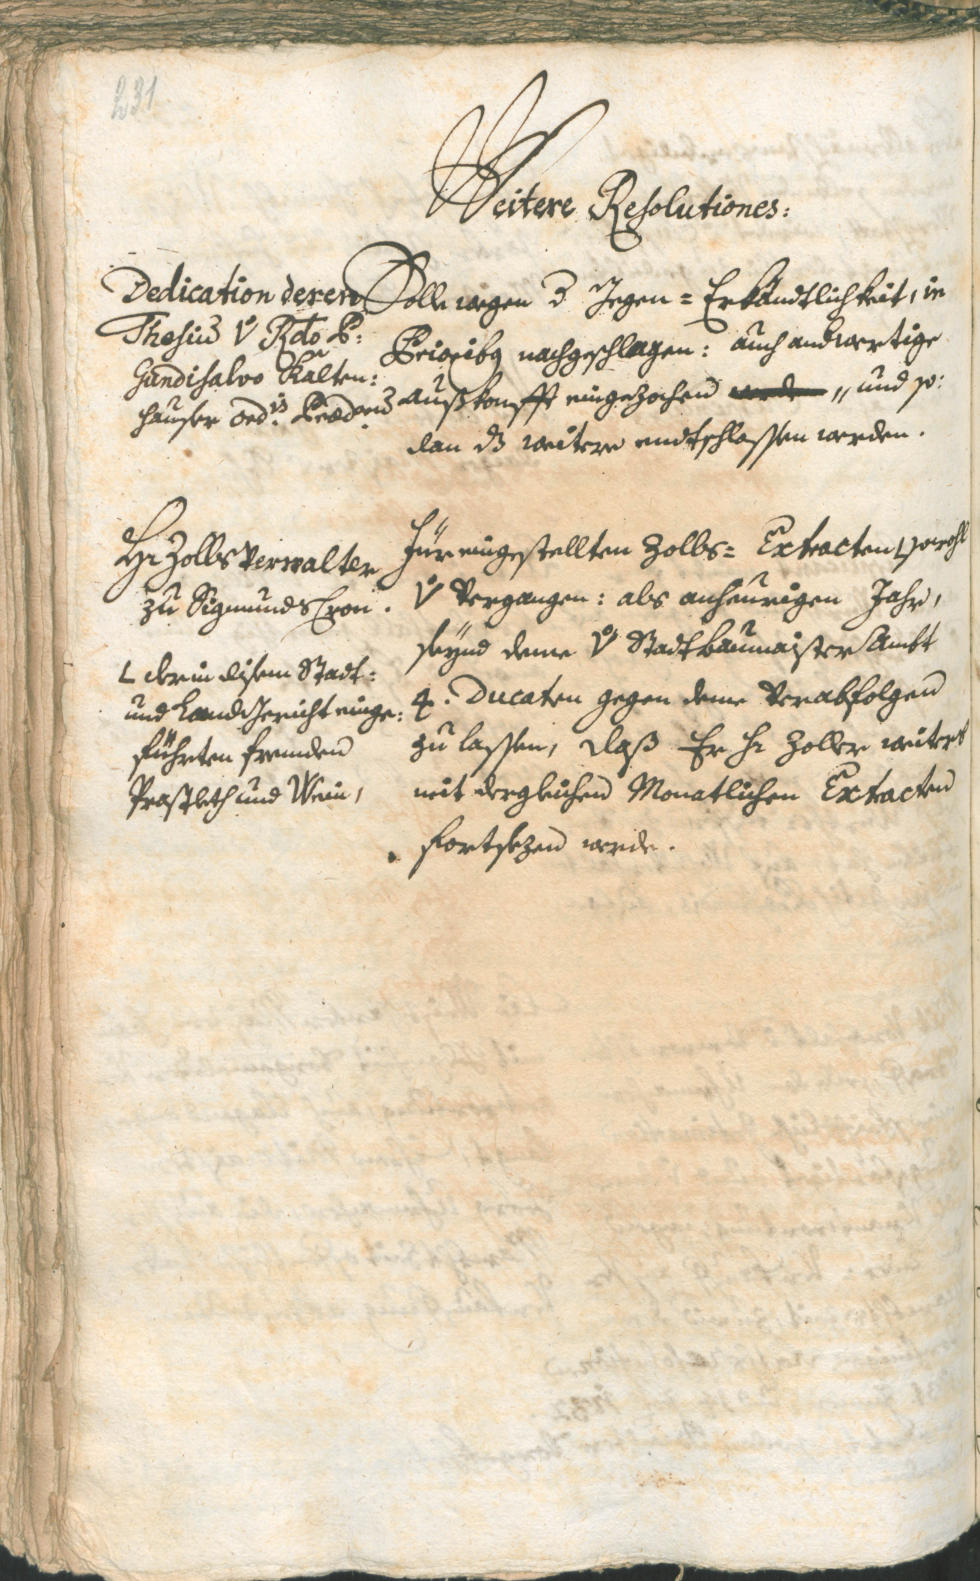 231
Weitere Resolutiones:
Dedication deren
Thesius v Rdo P:
Gundisalvo Kalten:
hauser ord: is Præd:
Solle wegen d Gegen=Erkändtlichkeit, in
Prioribg nachgeschlagen: auch andwertige
Außkonfft eingezochen werden „ und so:
dan ds weitere endtschlossen werden.
Hr Zolls Verwalter
zu Sigmundscron.
L der in disem Stadt:
und Landtgericht einge:
führten frembden
Praschleth und Wein,
Für eingestellten Zolls= Extracten L sowohl
v Vergangen: als anheurigen Jahr,
seynd deme v Stadtbaumaister Ambt
4. Ducaten gegen deme verabfolgen
zu lassen, daß Er Hr Zoller weiters
mit dergleichen Monatlichen Extracten
fortsezen werde.